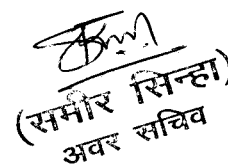 (समीर सिन्हा)
अवर सचिव